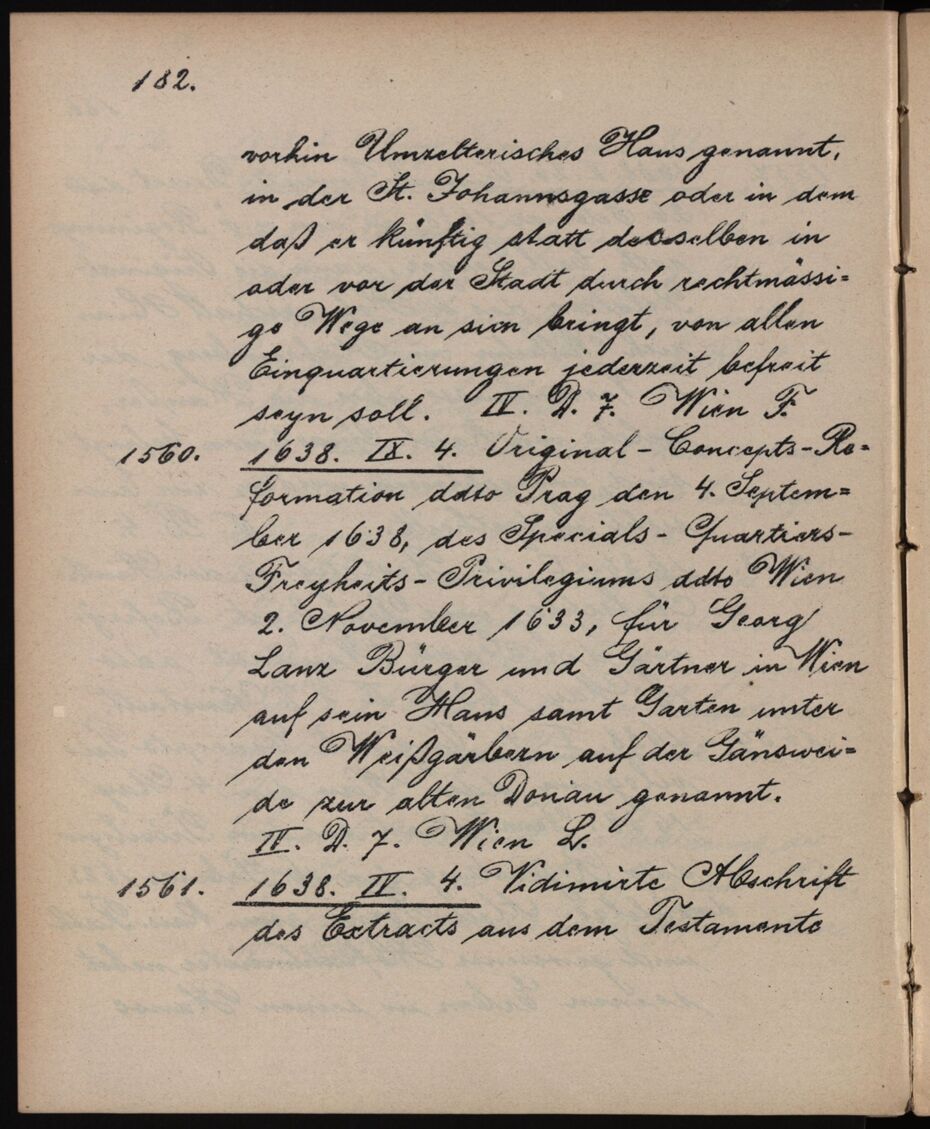 182.
vorhin Umzelterisches Haus genannt,
in der St. Johannsgasse oder in dem
daß er künftig statt desselben in
oder vor der Stadt durch rechtmässi=
ge Wege an sich bringt, von allen
Einquartierungen jederzeit befreit
seyn soll. IV. D. 7. Wien F.
1560. 1638. IX. 4. Original-Concepts-Re=
formation ddto Prag den 4. Septem=
ber 1638, des Specials-Quartiers-
Freyheits-Privilegiums ddto Wien
2. November 1633, für Georg
Lanz Bürger und Gärtner in Wien
auf sein Haus samt Garten unter
den Weißgärbern auf der Gänswei=
de zur alten Donau genannt.
IV. D. 7. Wien L.
1561. 1638. IV. 4. Vidimirte Abschrift
des Extracts aus dem Testamente